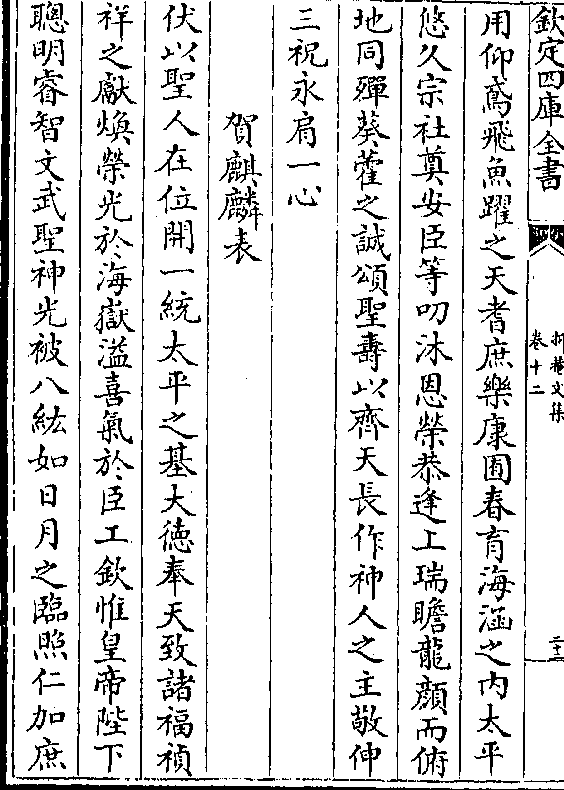 欽定四庫全書
卷十二
用仰鳶飛魚躍之天耆庶樂康囿春育海涵之内太平
悠久宗社奠安臣等叨沐恩榮恭逢上瑞瞻龍顔而俯
地同殫葵藿之誠頌聖壽以齊天長作神人之主敬伸
三祝永肩一心
賀麒麟表
伏以聖人在位開一統太平之基大德奉天致諸福禎
祥之獻煥榮光於海嶽溢喜氣於臣工欽惟皇帝陛下
聰明睿智文武聖神光被八紘如日月之臨照仁加庶